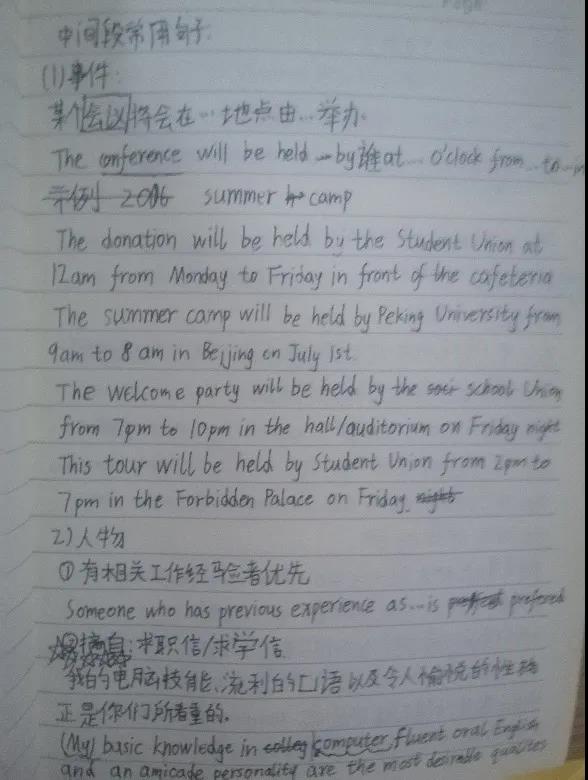 Page
中间段常用句子:
(1)事件:
某个会议将会在…地点由…举办.
The conference will be held … by 谁 at… o'clock from … to … in
示例 2006 summer camp
The donation will be held by the Student Union at
12am from Monday to Friday in front of the cafeteria
The summer camp will be held by Peking University from
9am to 8am in Beijing on July 1st.
The welcome party will be held by the school Union
from 7pm to 10pm in the hall/auditorium on Friday night
This tour will be held by Student Union from 2pm to
7pm in the Forbidden Palace on Friday night
2)人物
①有相关工作经验者优先
Someone who has previous experience as…is prefered
②摘自:求职信/求学信
我的电脑技能、流利的口语以及令人愉悦的性格
正是你们所看重的.
(My) basic knowledge in computer, fluent oral English
and an amicade personality are the most desirable qualites